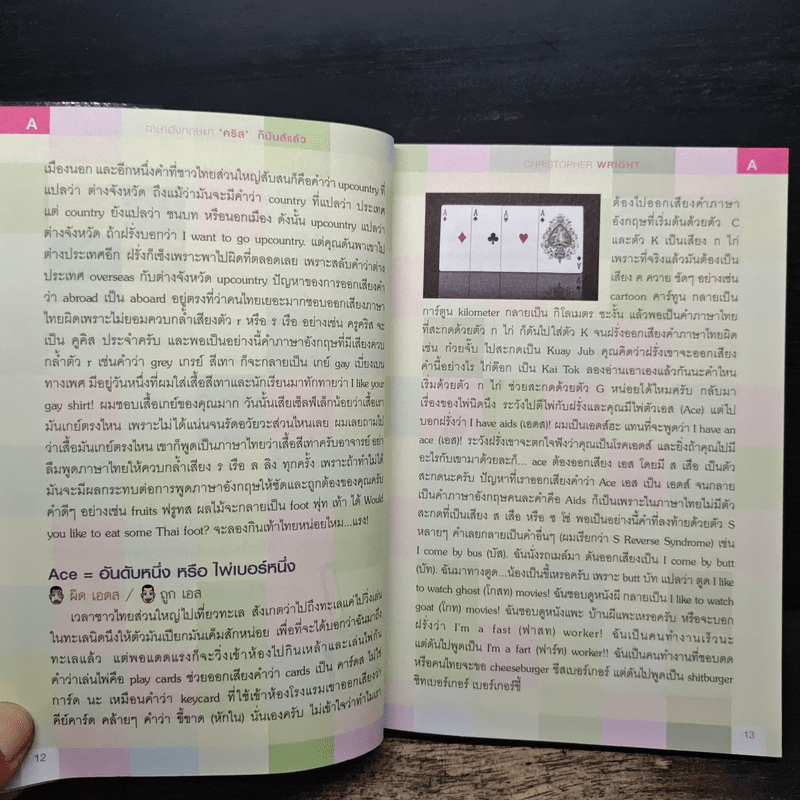 A
ภาษาอังกฤษแค่ "คริส" ก็มันส์แล้ว
เมืองนอก และอีกหนึ่งคำที่ชาวไทยส่วนใหญ่สับสนก็คือคำว่า upcountry ที่
แปลว่า ต่างจังหวัด ถึงแม้ว่ามันจะมีคำว่า country ที่แปลว่า ประเทศ
แต่ country ยังแปลว่า ชนบท หรือนอกเมือง ดังนั้น upcountry แปลว่า
ต่างจังหวัด ถ้าฝรั่งบอกว่า I want to go upcountry. แต่คุณดันพาเขาไป
ต่างประเทศอีก ฝรั่งก็เซ็งเพราะพาไปผิดที่ตลอดเลย เพราะสลับคำว่าต่าง
ประเทศ overseas กับต่างจังหวัด upcountry ปัญหาของการออกเสียงคำ
ว่า abroad เป็น aboard อยู่ตรงที่ว่าคนไทยเยอะมากชอบออกเสียงภาษา
ไทยผิดเพราะไม่ยอมควบกล้ำเสียงตัว r หรือ ร เรือ อย่างเช่น ครูคริส จะ
เป็น คูคิส ประจำครับ และพอเป็นอย่างนี้คำภาษาอังกฤษที่มีเสียงควบ
กล้ำตัว r เช่นคำว่า grey เกรย์ สีเทา ก็จะกลายเป็น เกย์ gay เบี่ยงเบน
ทางเพศ มีอยู่วันหนึ่งที่ผมใส่เสื้อสีเทาและนักเรียนมาทักทายว่า I like your
gay shirt! ผมชอบเสื้อเกย์ของคุณมาก วันนั้นเสียเซ็ลฟ์เล็กน้อยว่าเสื้อเรา
มันเกย์ตรงไหน เพราะไม่ได้แน่นจนรัดอวัยวะส่วนไหนเลย ผมเลยถามไป
ว่าเสื้อมันเกย์ตรงไหน เขาก็พูดเป็นภาษาไทยว่าเสื้อสีเทาครับอาจารย์ อย่า
ลืมพูดภาษาไทยให้ควบกล้ำเสียง ร เรือ ล ลิง ทุกครั้ง เพราะถ้าทำไม่ได้
มันจะมีผลกระทบต่อการพูดภาษาอังกฤษให้ชัดและถูกต้องของคุณครับ
คำดีๆ อย่างเช่น fruits ฟรูทส ผลไม้จะกลายเป็น foot ฟุท เท้า ได้ Would
you like to eat some Thai foot? จะลองกินเท้าไทยหน่อยไหม...แรง!
Ace = อันดับหนึ่ง หรือ ไพ่เบอร์หนึ่ง
ผิด เอดส / ถูก เอส
เวลาชาวไทยส่วนใหญ่ไปเที่ยวทะเล สังเกตว่าไปถึงทะเลแค่ไปวิ่งเล่น
ในทะเลนิดนึงให้ตัวมันเปียกมันเค็มสักหน่อย เพื่อที่จะได้บอกว่าฉันมาถึง
ทะเลแล้ว แต่พอแดดแรงก็จะวิ่งเข้าห้องไปกินเหล้าและเล่นไพ่กัน
คำว่าเล่นไพ่คือ play cards ช่วยออกเสียงคำว่า cards เป็น คาร์ดส ไม่ใช่
การ์ด นะ เหมือนคำว่า keycard ที่ใช้เข้าห้องโรงแรมเขาออกเสียงว่า
คีย์คาร์ด คล้ายๆ คำว่า ขี้ขาด (หักใน) นั่นเองครับ ไม่เข้าใจว่าทำไมเรา
12
CHRISTOPHER WRIGHT
A
ต้องไปออกเสียงคำภาษา
อังกฤษที่เริ่มต้นด้วยตัว C
และตัว K เป็นเสียง ก ไก่
เพราะที่จริงแล้วมันต้องเป็น
เสียง ค ควาย ชัดๆ อย่างเช่น
cartoon คาร์ทูน กลายเป็น
การ์ตูน kilometer กลายเป็น กิโลเมตร ซะงั้น แล้วพอเป็นคำภาษาไทย
ที่สะกดด้วยตัว ก ไก่ ก็ดันไปใส่ตัว K จนฝรั่งออกเสียงคำภาษาไทยผิด
เช่น ก๋วยจั๊บ ไปสะกดเป็น Kuay Jub คุณคิดว่าฝรั่งเขาจะออกเสียง
คำนี้อย่างไร ไก่ต๊อก เป็น Kai Tok ลองอ่านเอาเองแล้วกันนะคำไหน
เริ่มด้วยตัว ก ไก่ ช่วยสะกดด้วยตัว G หน่อยได้ไหมครับ กลับมา
เรื่องของไพ่นิดนึง ระวังไปตีไพ่กับฝรั่งและคุณมีไพ่ตัวเอส (Ace) แต่ไป
บอกฝรั่งว่า I have aids (เอดส)! ผมเป็นเอดส์ฮะ แทนที่จะพูดว่า I have an
ace (เอส)! ระวังฝรั่งเขาจะตกใจฟังว่าคุณเป็นโรคเอดส์ และยิ่งถ้าคุณไปมี
อะไรกับเขามาด้วยละก็... ace ต้องออกเสียง เอส โดยมี ส เสือ เป็นตัว
สะกดนะครับ ปัญหาที่เราออกเสียงคำว่า Ace เอส เป็น เอดส์ จนกลาย
เป็นคำภาษาอังกฤษคนละคำคือ Aids ก็เป็นเพราะในภาษาไทยไม่มีตัว
สะกดที่เป็นเสียง ส เสือ หรือ ซ โซ่ พอเป็นอย่างนี้คำที่ลงท้ายด้วยตัว S
หลายๆ คำเลยกลายเป็นคำอื่นๆ (ผมเรียกว่า S Reverse Syndrome) เช่น
I come by bus (บัส). ฉันนั่งรถเมล์มา ดันออกเสียงเป็น I come by butt
(บัท). ฉันมาทางตูด...น้องเป็นขี้เหรอครับ เพราะ butt บัท แปลว่า ตูด I like
to watch ghost (โกสท) movies! ฉันชอบดูหนังผี กลายเป็น I like to watch
goat (โกท) movies! ฉันชอบดูหนังแพะ บ้านผีแพะเหรอครับ หรือจะบอก
ฝรั่งว่า I'm a fast (ฟาสท) worker! ฉันเป็นคนทำงานเร็วนะ
แต่ดันไปพูดเป็น I'm a fart (ฟาร์ท) worker!! ฉันเป็นคนทำงานที่ชอบตด
หรือคนไทยจะขอ cheeseburger ชีสเบอร์เกอร์ แต่ดันไปพูดเป็น shitburger
ชิทเบอร์เกอร์ เบอร์เกอร์ขี้
13